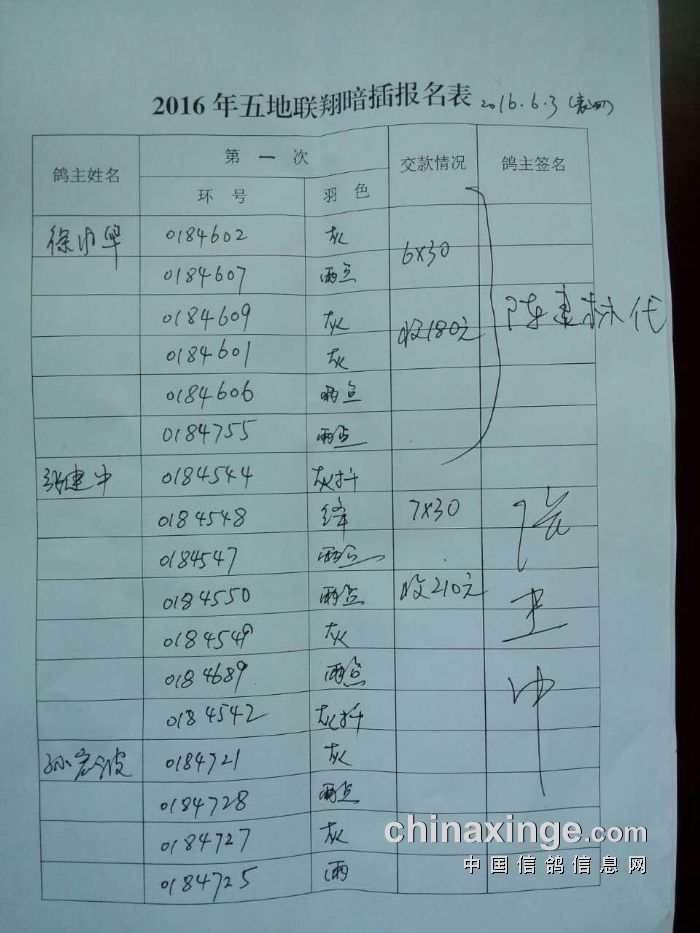 2016年五地联翔暗插报名表 2016.6.3 (表四)
鸽主姓名 第一次 交款情况 鸽主签名
环号 羽色
0184602 灰 6X30
0184607 雨点
0184609 灰 收180元 陈建林代
0184601 灰
0184606 雨点
0184755 雨点
张建中 0184544 灰抖
0184548 绛 7X30
0184547 雨点
0184550 雨点 收210元
0184549 灰
0184689 雨点
0184542 灰抖
孙宏波 0184721 灰
0184728 雨点
0184727 灰
0184725 雨
chinaxinge.com
中国信鸽信息网